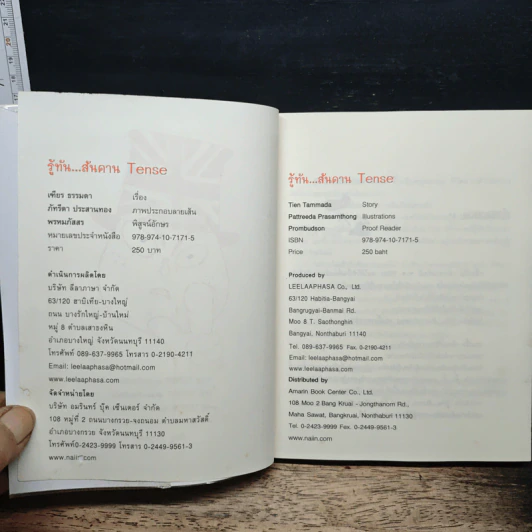 รู้ทัน...สันดาน Tense
เฑียร ธรรมดา เรื่อง
ภัทรีดา ประสานทอง ภาพประกอบลายเส้น
พรหมภัสสร พิสูจน์อักษร
หมายเลขประจำหนังสือ 978-974-10-7171-5
ราคา 250 บาท
ดำเนินการผลิตโดย
บริษัท ลีลาภาษา จำกัด
63/120 ฮาบิเทีย-บางใหญ่
ถนน บางรักใหญ่-บ้านใหม่
หมู่ 8 ตำบลเสาธงหิน
อำเภอบางใหญ่ จังหวัดนนทบุรี 11140
โทรศัพท์ 089-637-9965 โทรสาร 0-2190-4211
Email: leelaaphasa@hotmail.com
www.leelaaphasa.com
จัดจำหน่ายโดย
บริษัท อมรินทร์ บุ๊ค เซ็นเตอร์ จำกัด
108 หมู่ที่ 2 ถนนบางกรวย-จงถนอม ตำบลมหาสวัสดิ์
อำเภอบางกรวย จังหวัดนนทบุรี 11130
โทรศัพท์0-2423-9999 โทรสาร 0-2449-9561-3
www.naiin.com
รู้ทัน...สันดาน Tense
Tien Tammada Story
Pattreeda Prasarnthong Illustrations
Prombudson Proof Reader
ISBN 978-974-10-7171-5
Price 250 baht
Produced by
LEELAAPHASA Co., Ltd.
63/120 Habitia-Bangyai
Bangrugyai-Banmai Rd.
Moo 8 T. Saothonghin
Bangyai, Nonthaburi 11140
Tel. 089-637-9965 Fax. 0-2190-4211
Email: leelaaphasa@hotmail.com
www.leelaaphasa.com
Distributed by
Amarin Book Center Co., Ltd.
108 Moo 2 Bang Kruai -Jongthanom Rd.,
Maha Sawat, Bangkruai, Nonthaburi 11130
Tel. 0-2423-9999 Fax. 0-2449-9561-3
www.naiin.com